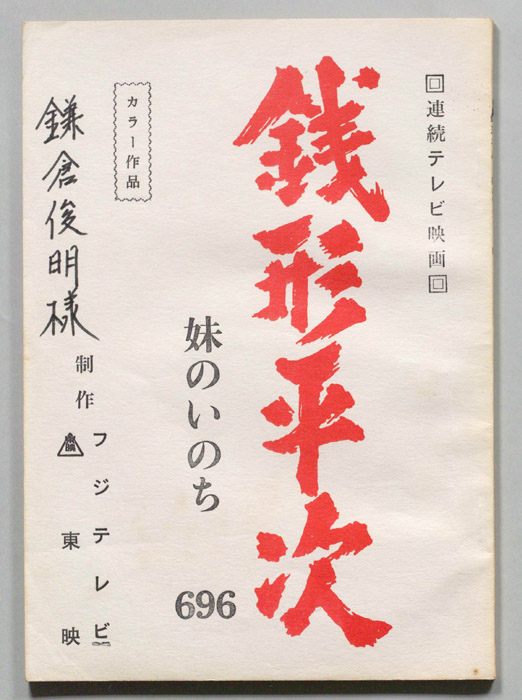 □連続テレビ映画□
銭形平次
妹のいのち
696
カラー作品
鎌倉俊明様
制作
フジテレビ
東映